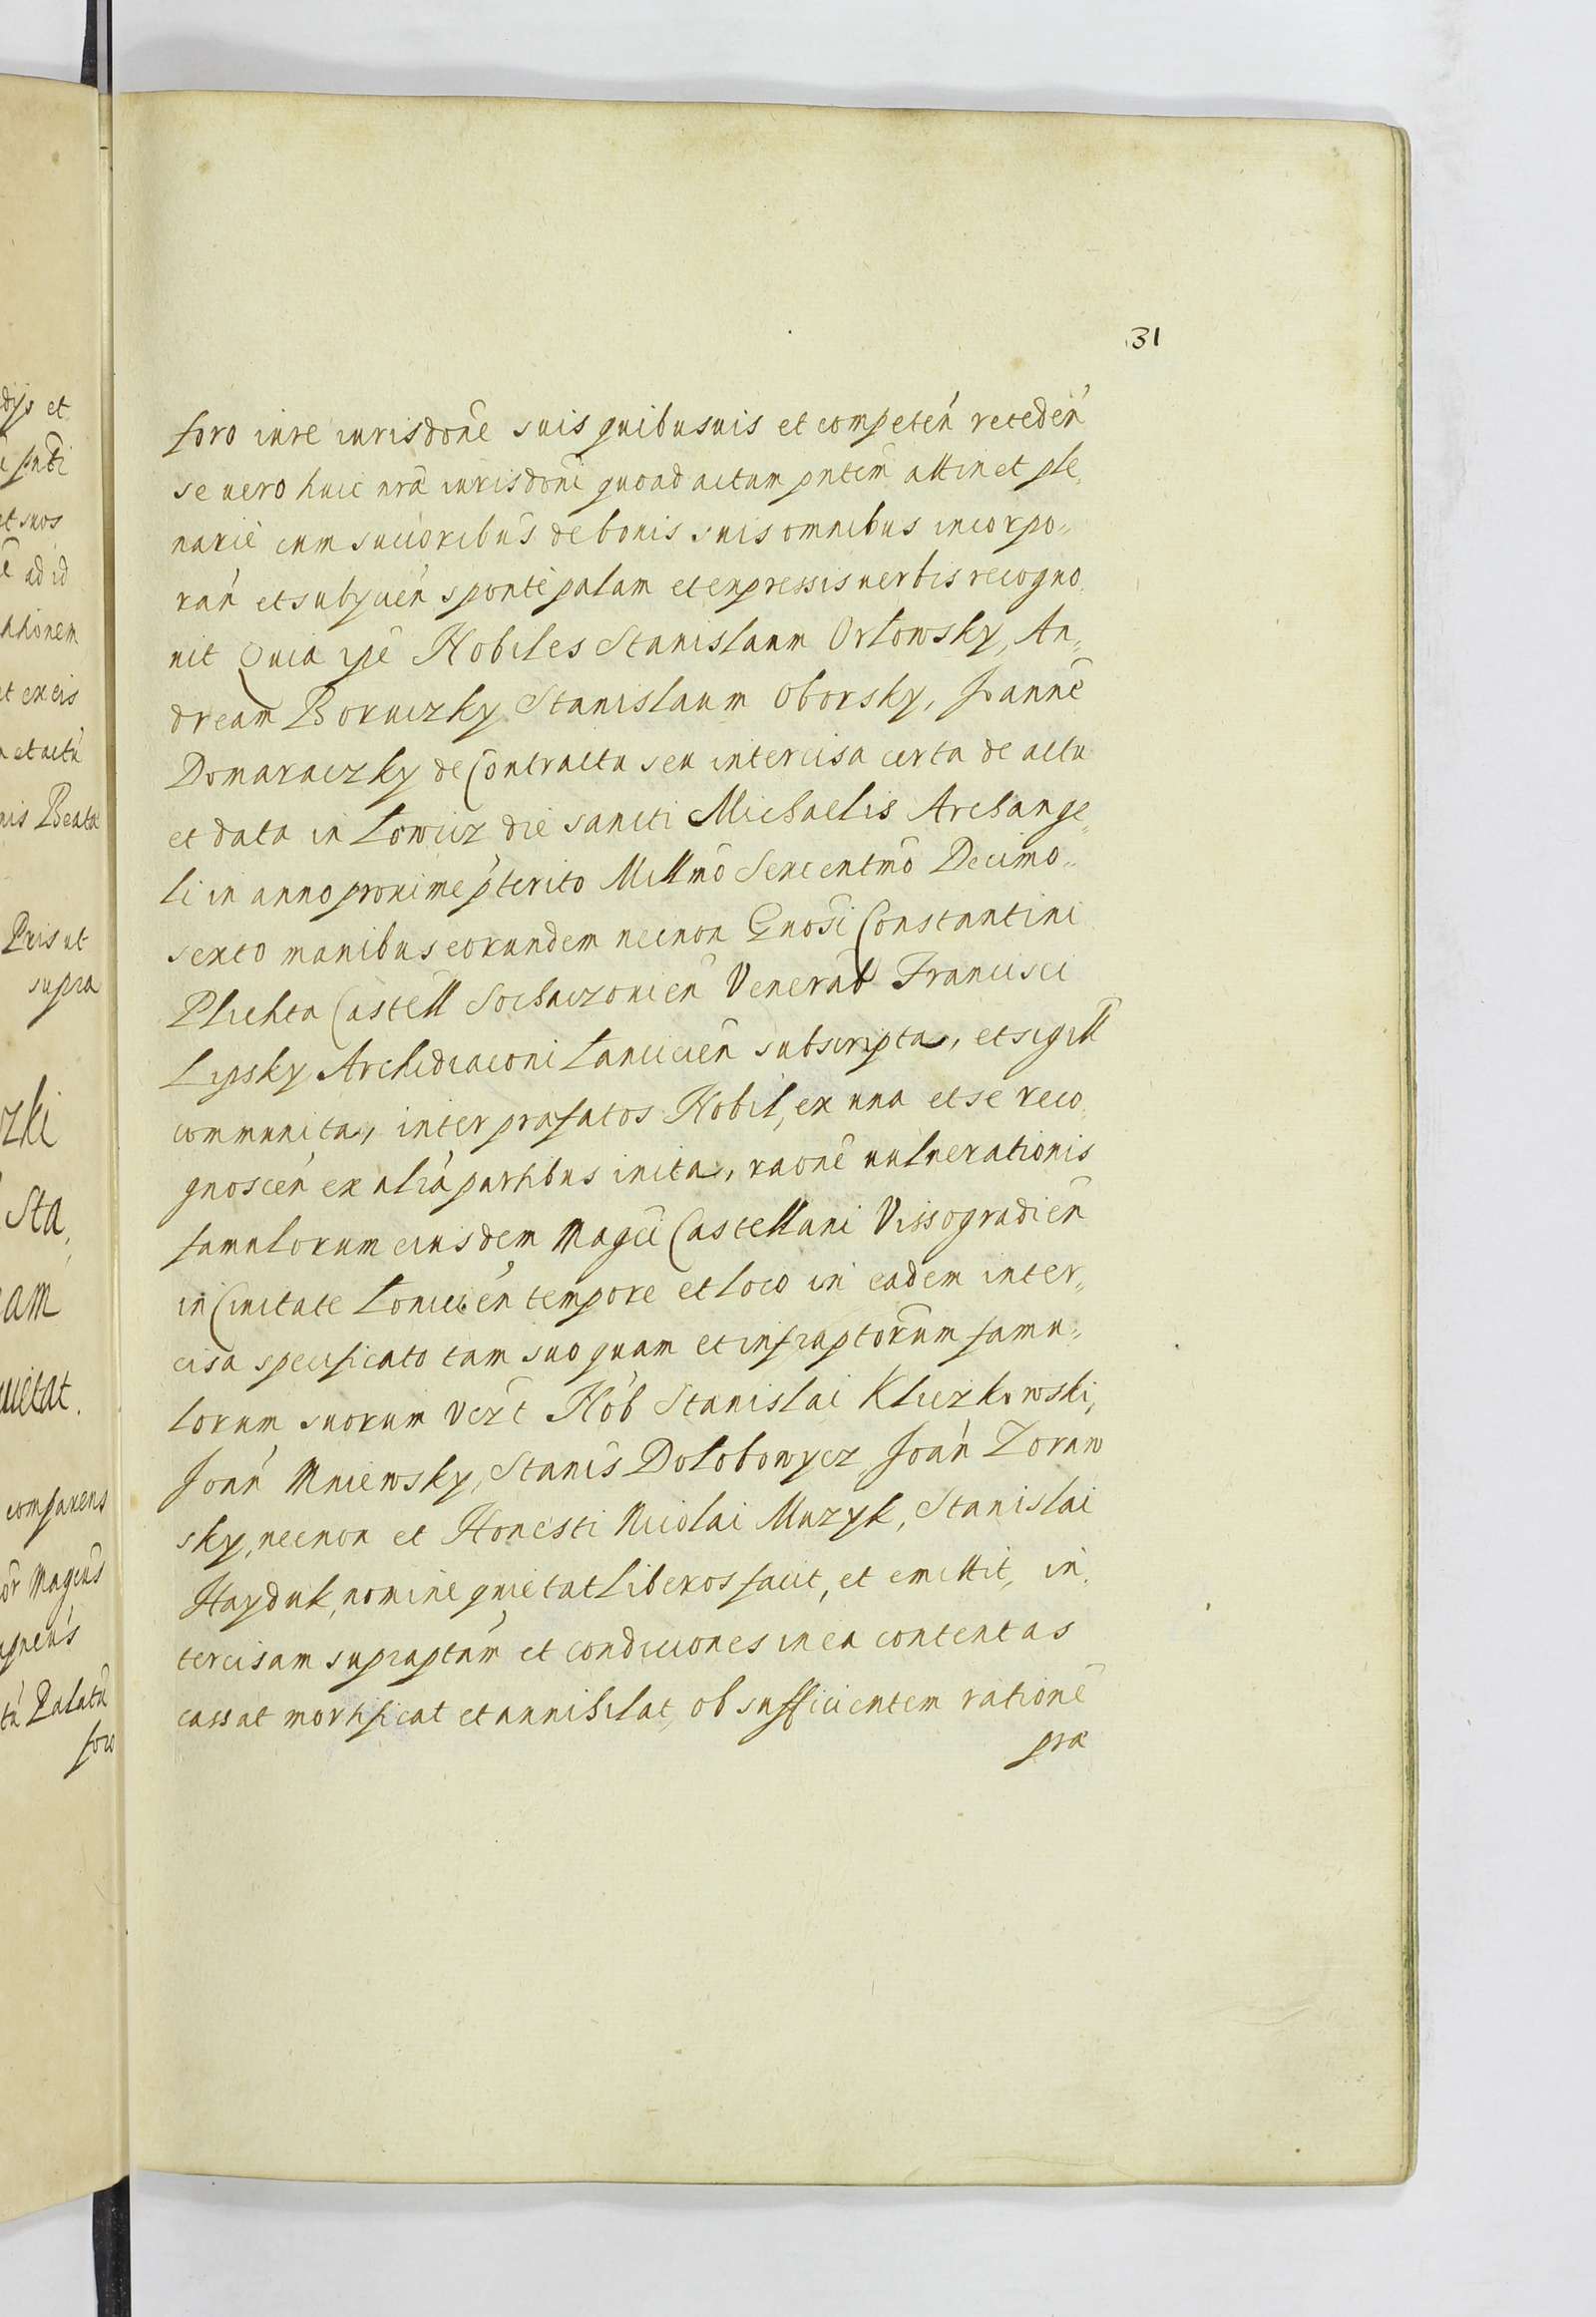 31
dijs et
putī
et suos
ē ad id
ttionem
et ex eis
et actú
nis Beatæ
Pris ut
supra
zki
Sta„
am
uietat.
comparens
Magcūs
Palatū
foro
foro iure iurisdōnē suis quibusuis et competeń recedeń
se uero huic nrā iurisdōni quoad actum pntēm attinet ple„
narie cum succoribūs de bonis suis omnibus incorpo„
rań et subijcień sponte palam et expressis uerbis recogno„
uit Quia ipē Nobiles Stanislaum Orłowsky, An„
dream Boruczky Stanislaum Oborsky, Joannē
Domaraczky de Contractu seu intercisa certa de actu
et data in Łowicz die sancti Michaelis Archange„
li in anno proxime pterito Millmō Sexcentmō Decimo„
sexto manibus eorundem necnon Gnōsi Constantini
Plichta Castell Sochaczouień Venerab Francisci
Lipsky Archidiaconi Lancicień subscripta, et sigill
communita, inter præfatos Nobil, ex una et se reco„
gnosceń ex alia partibus inita, raōnē uulnerationis
famulorum eiusdem Magci Castellani Vissogradień
in Ciuitate Łouicień tempore et loco in eadem inter„
cisa specificato tam suo quam et infraptōrum famu„
lorum suorum vczt Nob Stanislai Kluczkowski,
Joań Mniewsky, Stanis Dolobowycz Joań Zoraw
sky, necnon et Honesti Nicolai Muzyk, Stanislai
Hayduk, nomine quietat liberos facit, et emittit, in„
tercisam supraptám et condiciones in ea contentas
cassat mortificat et annihilat, ob sufficientem rationē
præ